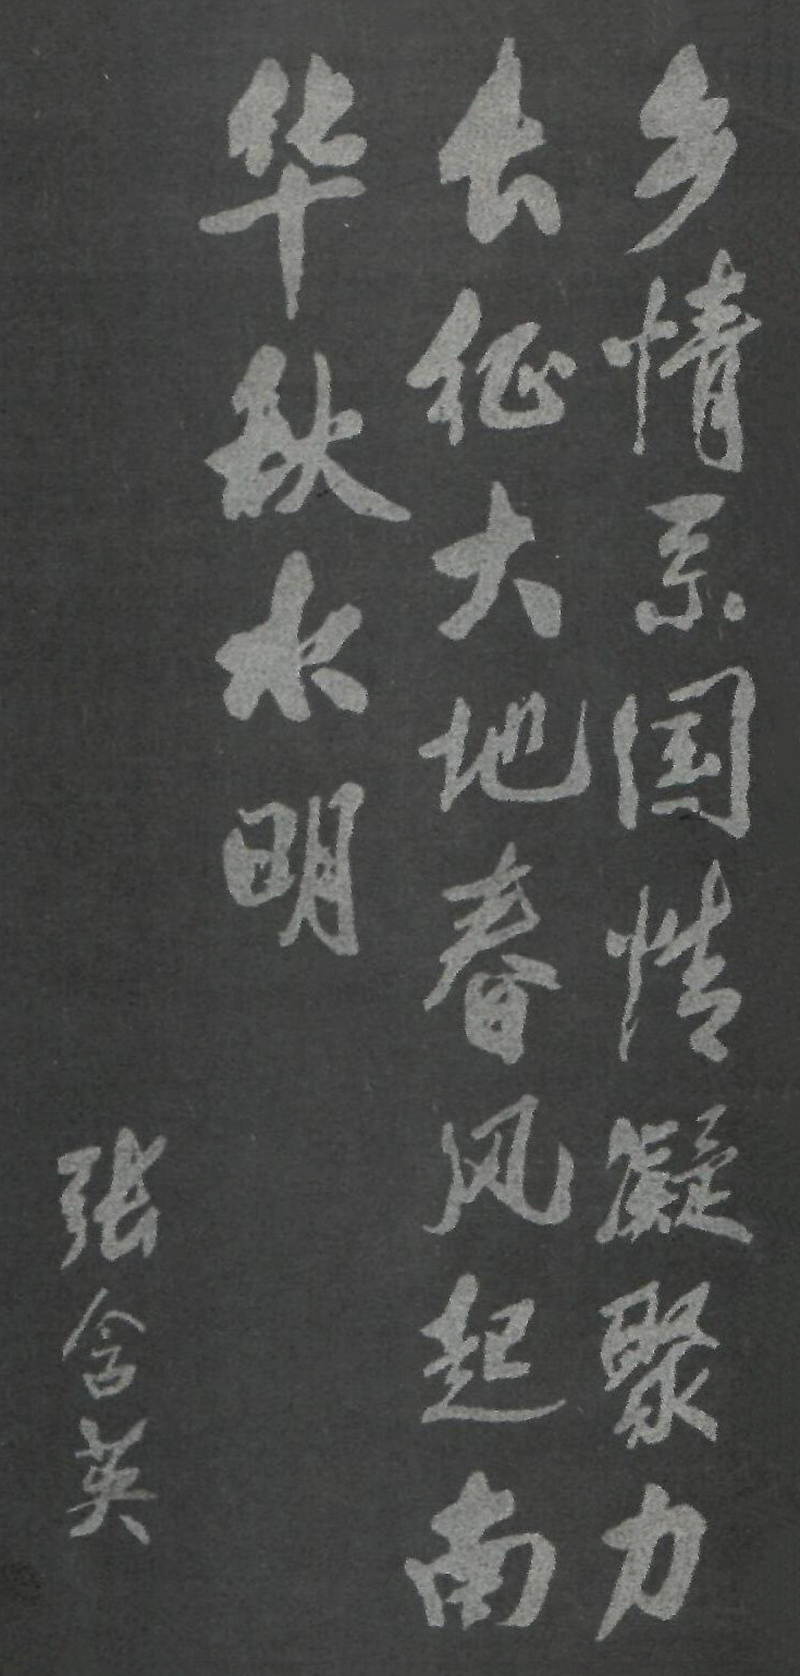 乡情系国情凝聚力
长征大地春风起南
华秋水明
张含英